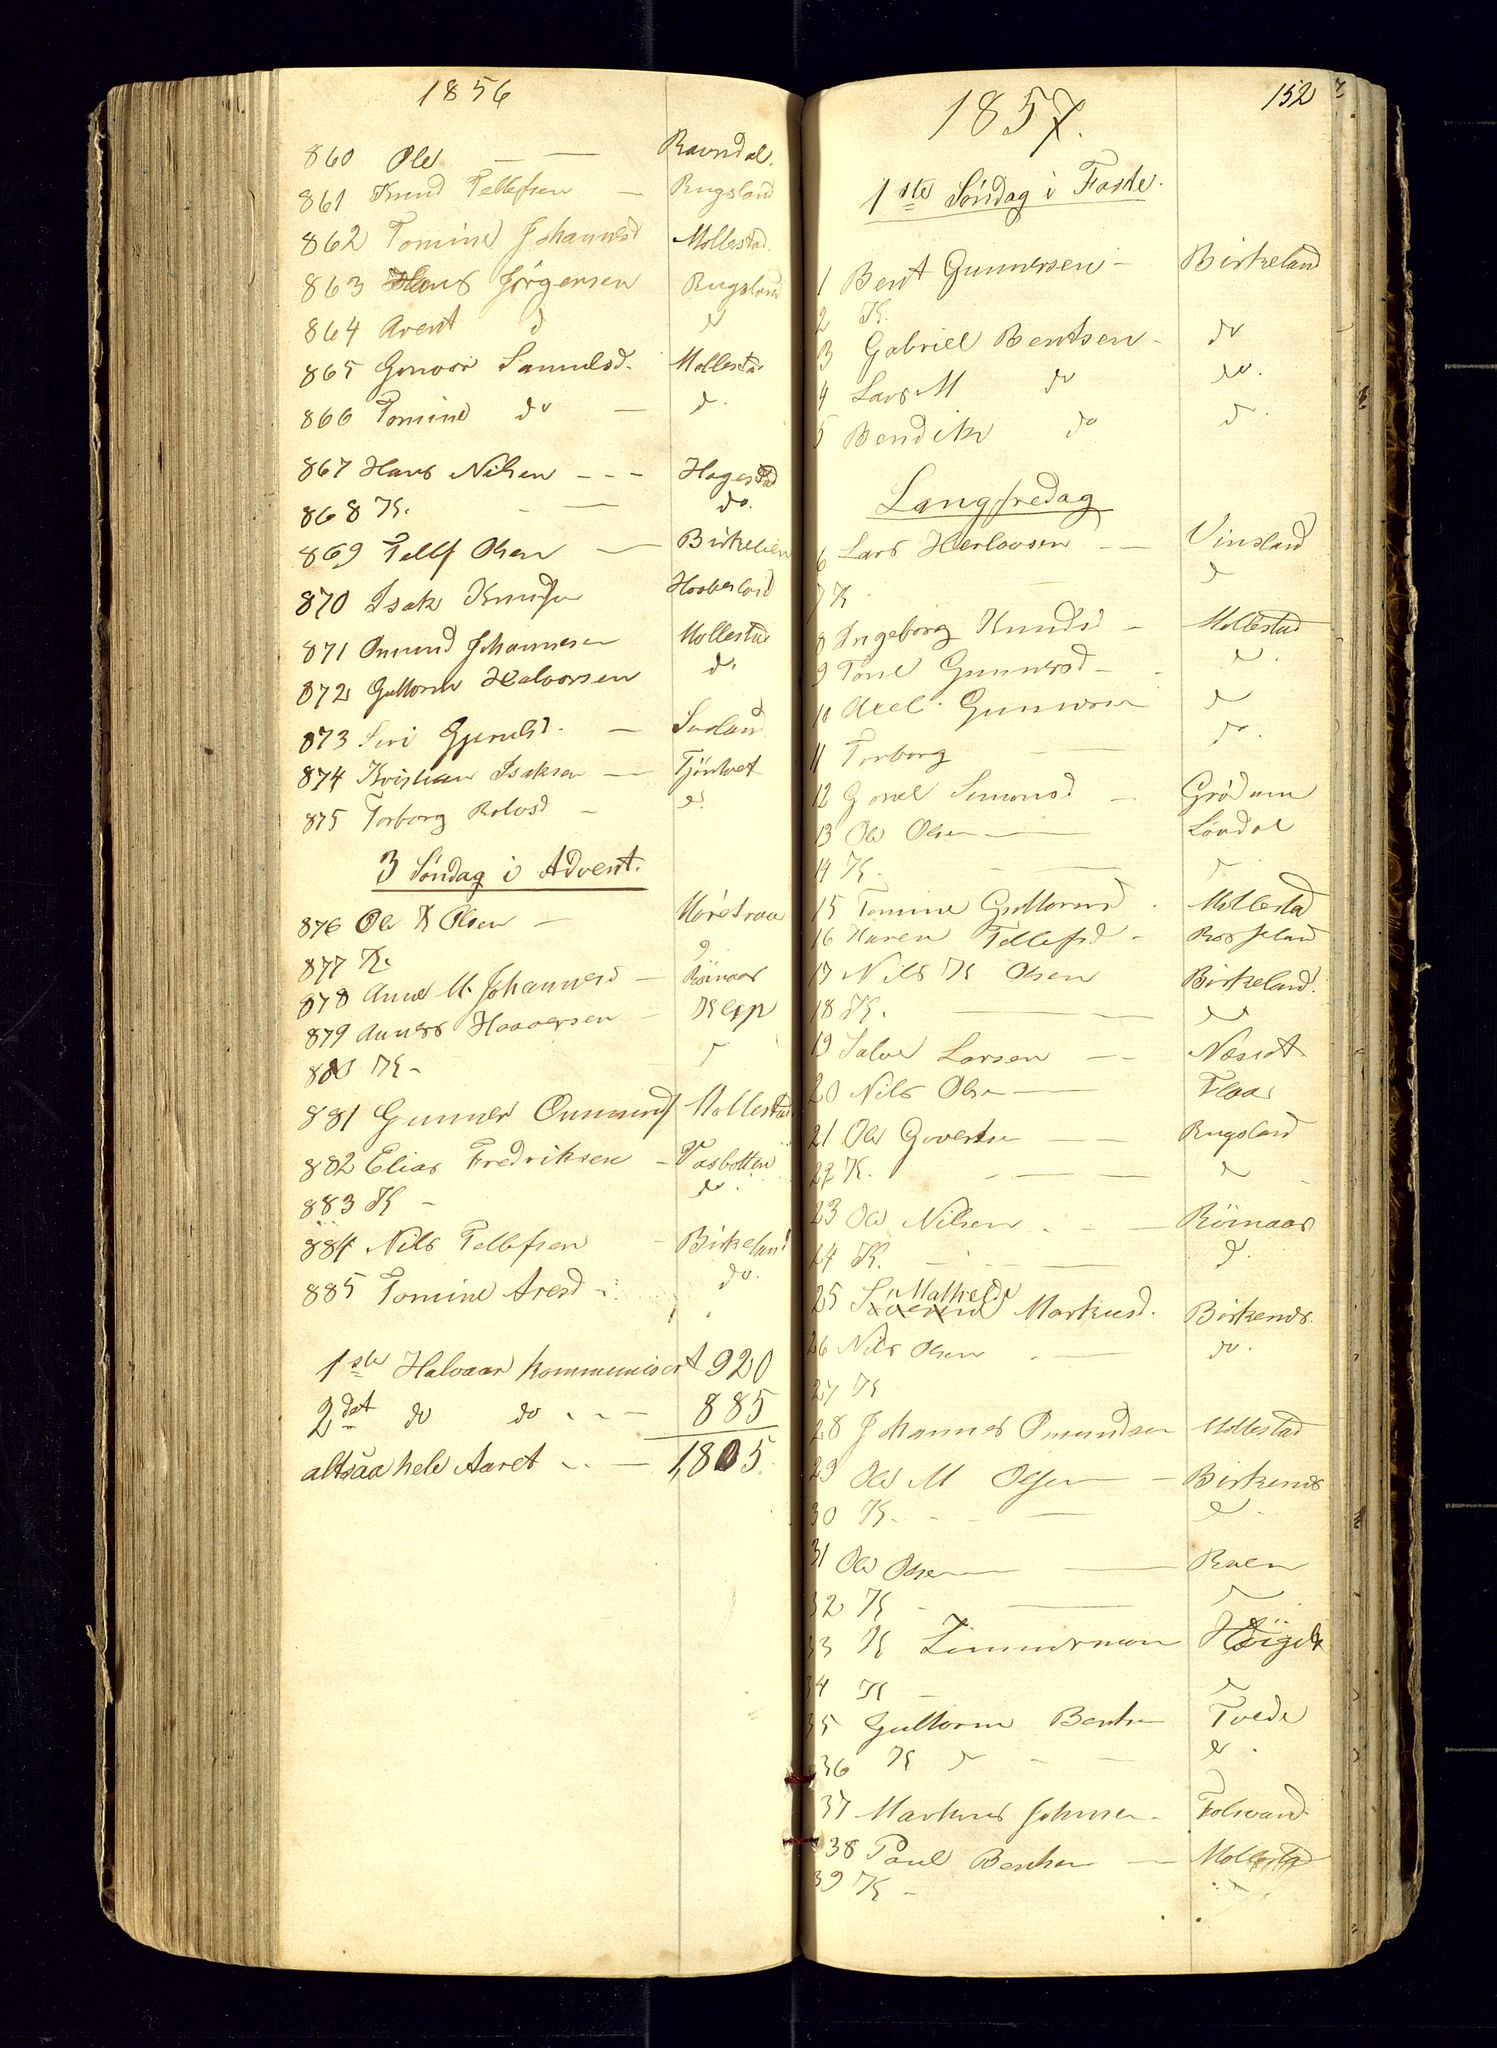 1856
860 Ole — — Ravndal.
861 Knud Tellefsen — Rugsland
862 Tomine Johannesd Mollestad.
863 Hans Jörgensen Rugsland
864 Arent d do
865 Gunvor Samuelsd. Mollestad
866 Tomine do — d.
867 Hans Nilsen - - - Hagestad
868 K. - — do.
869 Tellef Olsen — Birkelien
870 Isak Knudsen
871 Omund Johannesen Mollestad
872 Guttorm Halvorsen d.
873 Siri — Sosland
874 Kristian Isaksen — Tjönhvet
875 Torborg Rolvsd — d.
3 Søndag i Advent.
876 Ole K Olsen — Moretraae
877 K. d
878 Anne M. Johannesd — Röinaas
879 Anners Haavorsen — Klep
880 K -
881 Gunner Omunds Mollestad
882 Elias Fredriksen — Vasbotten
883 K - do.
884 Nils Tellefsen - Birkeland
885 Tomine Aresd - do.
1ste Halvaar Kommunisert 920
2det do do . - — 885
altsaa hele Aaret . . — 1,805.
152
1857.
1ste Søndag i Faste.
1 Bent Gunnersen - Birkeland
2 K.
3 Gabriel Bentsen - do
4 Lars M do do.
5 Bendikt do d.
Langfredag
6 Lars Herlovsen — Vinsland
7 K - — d
8 Ingeborg Knudsd — Mollestad
9 Tone Gunnersd - - do.
10 Axel Gunnersen do
11 Torborg — — do.
12 Gonel Simonsd — Grödum
13 Ole Olsen — Løvdal
14 K. - —
15 Tomine Guttormsd . Mollestad
16 Karen Tellefsd - Rosseland
17 Nils K Olsen Birkeland.
18 K. — — do
19 Salve Larsen — - Næset
20 Nils Olsen — Flaa
21 Ole Govertsen — — Rugsland
22 K. - — — do
23 Ole Nilsen . - — Röinaas
24 K. - - — d.
25 Mathilde Markusd. Birkenes.
26 Nils Olsen . — do.
27 K
28 Johannes Omundsen Mollestad
29 Ole M Olsen — Birkenes
30 K. - - — do.
31 Ole Olsen — — Raen
32 K - —
33 K Zimmerman Höigilt
34 K -
35 Guttorm Bentsen Tvede
36 K d - - do.
37 Markus Johnsen - Tolsvand
38 Paul Bentsen — Mollestad
39 K -